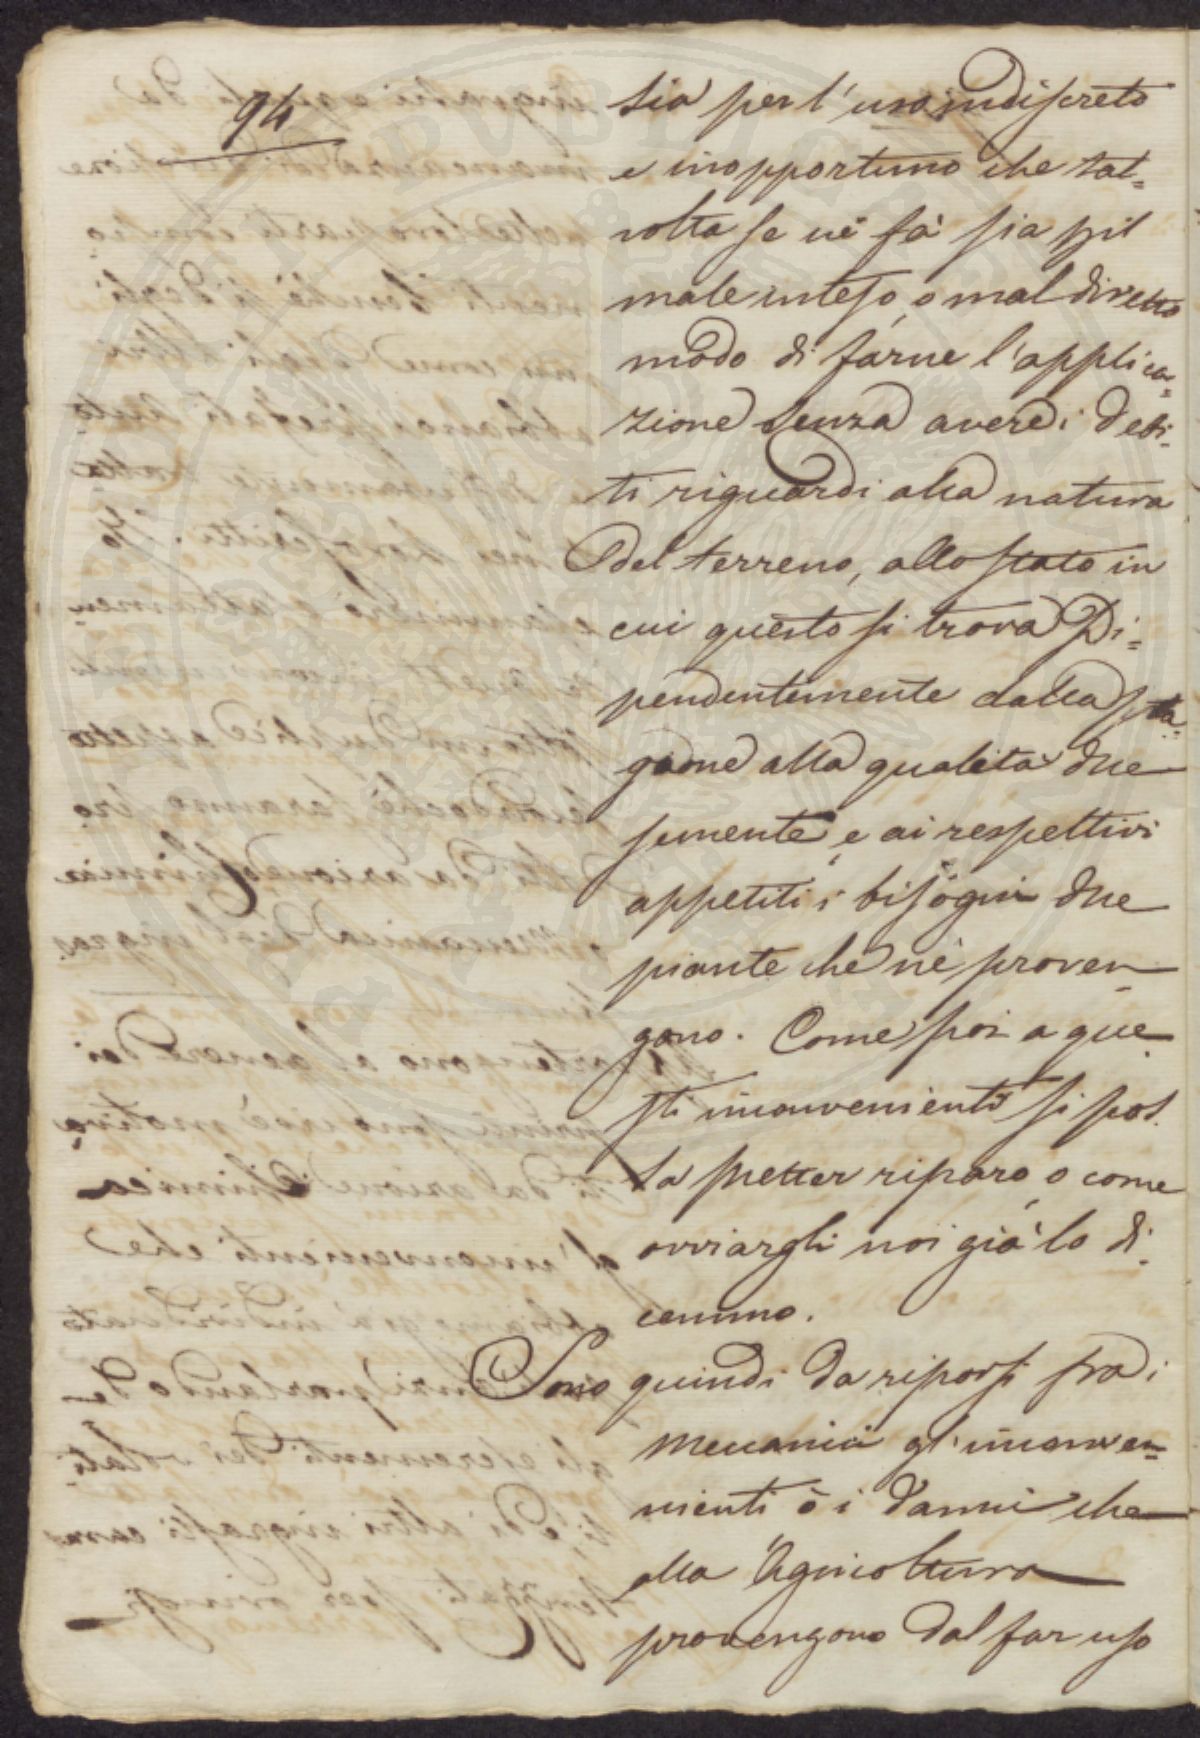 94
sia per l'uso indiscreto
e inopportuno che tal=
volta se nè fà sia pil
male inteso, o mal diretto
modo di farne l'applica=
zione senza avere i debi=
ti riguardi alla natura
del terreno, allo stato in
cui questo si trova Di=
pendentemente dalla sta=
gione alla qualità due
semente, e ai respettivi
appetiti, i bisogni due
piante che nè proven=
gono. Come poi a que
sti inconvenienti si pos
sa metter riparo, o come
ovviargli noi già lo di=
cemmo.
Sono quindi da riporsi fra i
Meccanici gl'inconven=
nienti ò i danni che
alla Agricoltura
provengono dal far uso